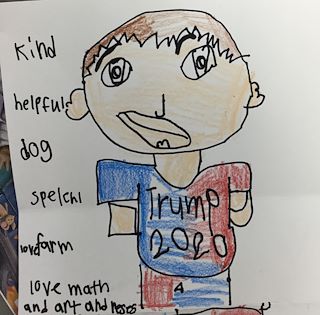 kind
helpful
dog
spelchl
Trump
2020
love farm
love math
and art and